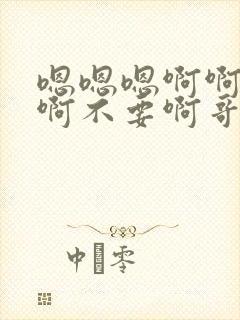 嗯嗯嗯啊啊
啊不要啊哥
中 零